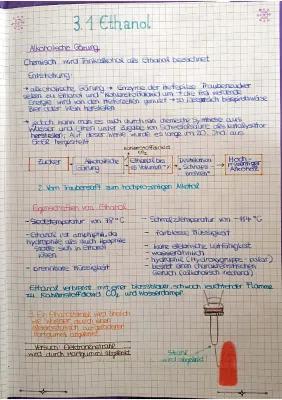 3.1 Ethanol
Alkoholische Gärung
Chemisch wird Trinkalkohol als Ethanol bezeichnet
Entstehung:
→ alkoholische Gärung → Enzyme der Hefepilze Traubenzucker
zu Ethanol und Kohlenstoffdioxid um → die frei werdende
Energie wird von den Hefezellen genutzt → so
Bier oder Wein herstellen
→ jedoch kann man es auch durch eine chemische Synthese aus
Wasser und Ethen unter Zugabe von Schwefelsäure als Katalysator
herstellen; Auf diese Weise wurde es lange im 20. Jhd. aus
hergestellt
Kohlenstoffdioxid
CO₂
Zucker → Alkoholische Gärung → Ethanol bis 15 Volumen % → Destillation Schnaps brennen → Hoch-
2. Vom Traubensaft zum hochprozentigen Alkohol
Eigenschaften von Ethanol
- Siedetemperatur von 78°C
- Schmelztemperatur von -114°C
- Ethanol ist amphiphil, da
hydrophile als auch lipophile
Stoffe sich in Ethanol
lösen
- farblose Flüssigkeit
- keine elektrische Leitfähigkeit
- wasserlöslich
- hydrophil (Hydroxygruppe - polar)
- brennbare Flüssigkeit
- besitzt einen charakteristischen
Geruch (alkoholisch riechend)
Ethanol verbrennt mit einer blassblauen, schwach leuchtender Flamme
zu Kohlenstoffdioxid CO₂ und Wasserdampf
3. Ein Ethanolstrahl wird ähnlich
wie Wasser durch einen
Hartgummi abgelenkt
Versuch: Elektronenstrahl
wird durch Hartgummi abgelenkt
Strahl
wird abgelenkt